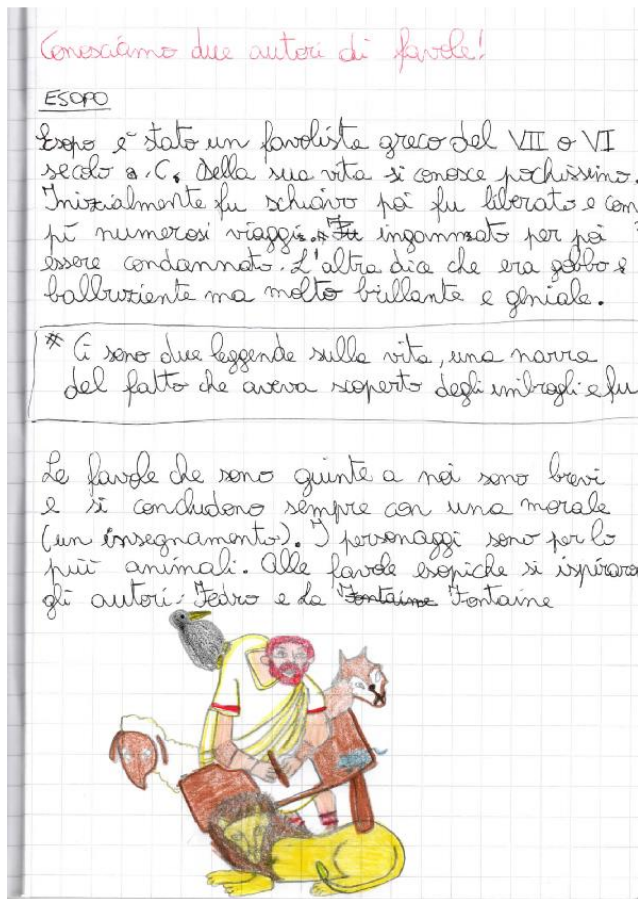 Conosciamo due autori di favole!
ESOPO
Esopo è stato un favolista greco del VII o VI
secolo a.C. Della sua vita si conosce pochissimo.
Inizialmente fu schiavo poi fu liberato e com
pì numerosi viaggi.* Fu ingannato per poi
essere condannato. L'altra dice che era gobbo e
balbuziente ma molto brillante e geniale.
* Ci sono due leggende sulla vita, una narra
del fatto che aveva scoperto degli imbrogli e fu
Le favole che sono giunte a noi sono brevi
e si concludono sempre con una morale
(un insegnamento). I personaggi sono per lo
più animali. Alle favole esopiche si ispirarono
gli autori: Fedro e La Fontaine Fontaine